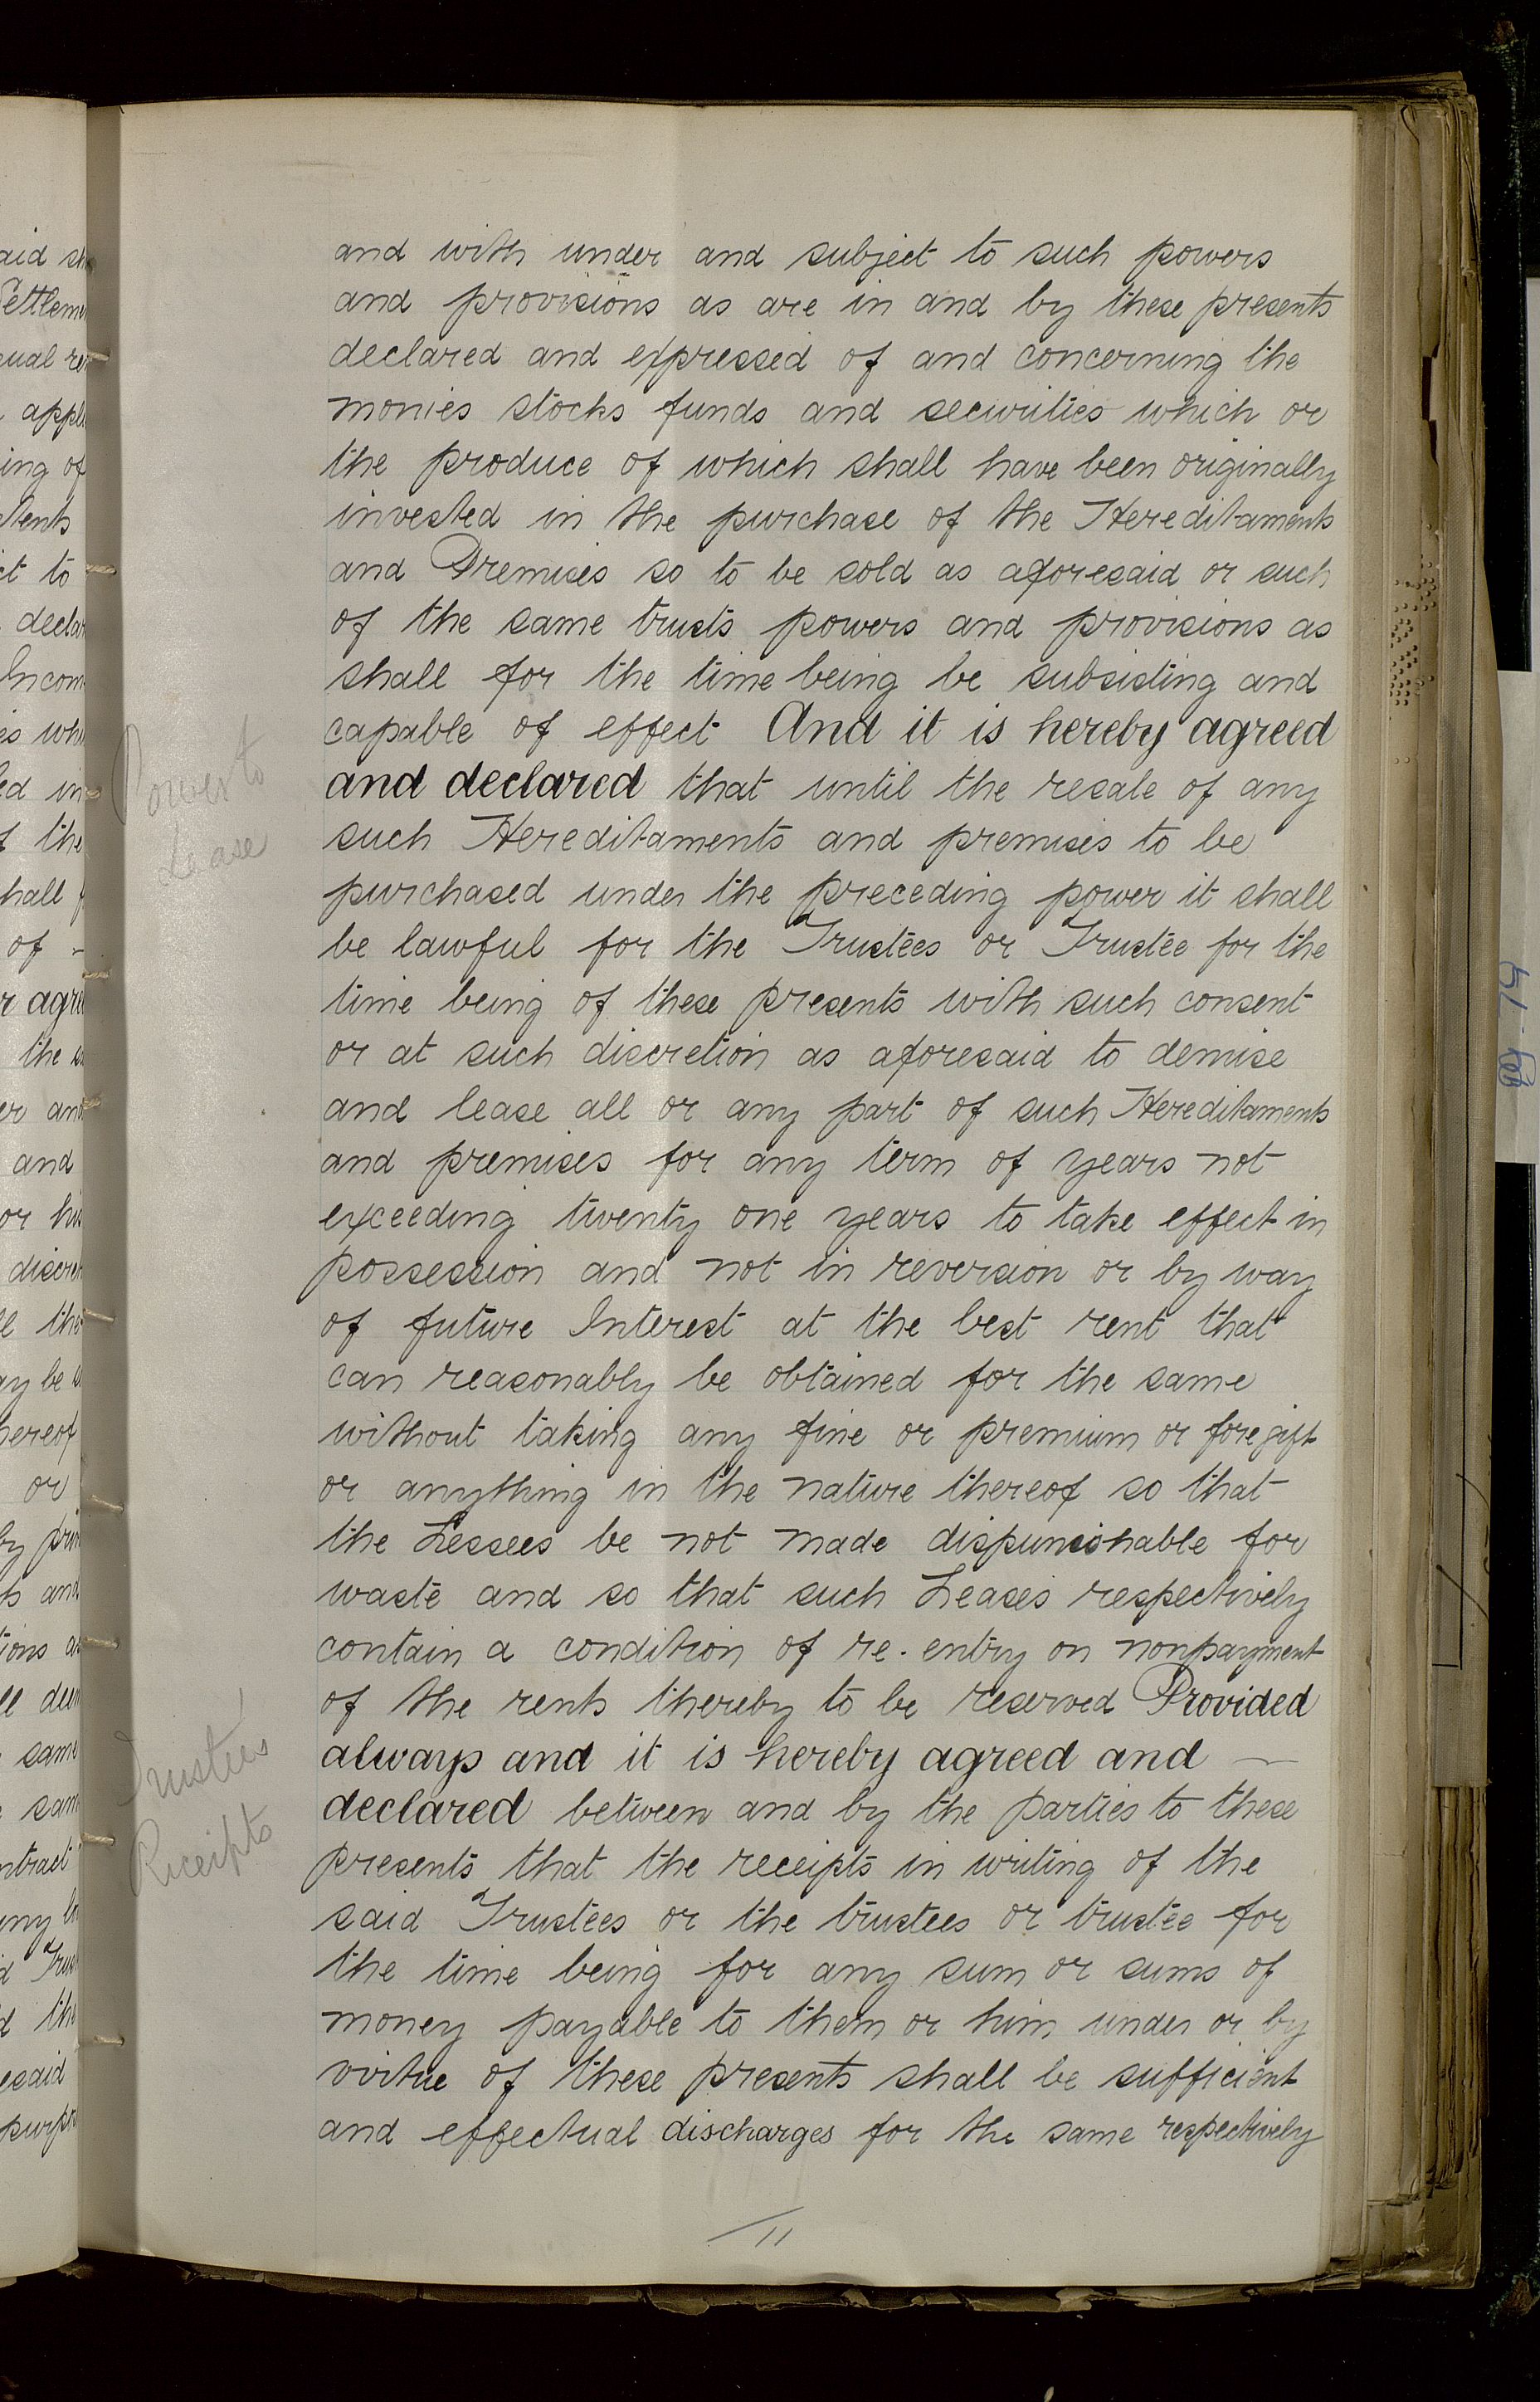 and with under and subject to such powers
and provisions as are in and by these presents
declared and expressed of and concerning the
monies stocks funds and securities which or
the produce of which shall have been originally
invested in the purchase of the Hereditaments
and Premises so to be sold as aforesaid or such
of the same trusts powers and provisions as
shall for the time being be subsisting and
capable of effect And it is hereby agreed
and declared that until the resale of any
such Hereditaments and premises to be
purchased under the preceding power it shall
be lawful for the Trustees or Trustee for the
time being of these presents with such consent
or at such discretion as aforesaid to demise
and lease all or any part of such Hereditaments
and premises for any term of years not
exceeding twenty one years to take effect in
possession and not in reversion or by way
of future Interest at the best rent that
can reasonably be obtained for the same
without taking any fine or premium or foregift
or anything in the nature thereof so that
the Lessees be not made dispunishable for
waste and so that such Leases respectively
contain a condition of re-entry on nonpayment
of the rents thereby to be reserved Provided
always and it is hereby agreed and
declared between and by the parties to these
presents that the receipts in writing of the
said Trustees or the trustees or trustee for
the time being for any sum or sums of
money payable to them or him under or by
virtue of these presents shall be sufficient
and effectual discharges for the same respectively
11
Power to
Lease
Trustees'
Receipts